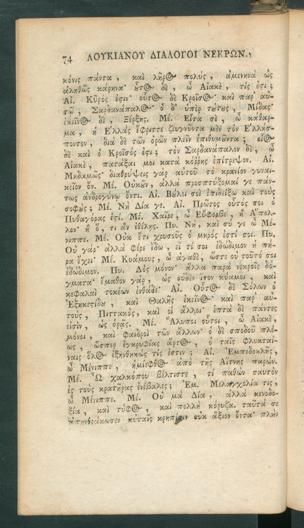 74 ΛΟΥΚΙΑΝΟΥ ΔΙΑΛΟΓΟΙ ΝΕΚΡΩΝ.
κόνις πάντα, καὶ λῆρος πολύς, ἀμενηνὰ ὡς
ἀληθῶς κάρηνα οὗτος δ', ὦ Αἰακέ, τίς ἐστι;
Αἰ. Κῦρός ἐστιν· οὗτος δὲ Κροῖσος καὶ παρ' αὐ-
τόν, Σαρδανάπαλος· ὁ δ' ὑπὲρ τούτους, Μίδας·
ἐκεῖνος δὲ, Ξέρξης. Μέ. Εἶτα σὲ, ὦ κάθαρ-
μα, ἡ Ἑλλὰς ἔφριττε ζευγνύντα μὲν τὸν Ἑλλήσ-
ποντον, διὰ δὲ τῶν ὀρῶν πλεῖν ἐπιθυμοῦντα; οἷος
δὲ καὶ ὁ Κροῖσός ἐστι; τὸν Σαρδανάπαλον δὲ, ὦ
Αἰακέ, πατάξαι μοι κατὰ κόρρης ἐπίτρεψον. Αἰ.
Μηδαμῶς· διαθρύψεις γὰρ αὐτοῦ τὸ κρανίον γυναι-
κεῖον ὄν. Μέ. Οὐκοῦν, ἀλλὰ προσπτύξομαί γε πάν-
τως ἀνδρογύνῳ ὄντι. Αἰ. Βούλει σοὶ ἐπιδείξω καὶ τοὺς
σοφούς; Μέ. Νὴ Δία γε. Αἰ. Πρῶτος οὗτός σοι ὁ
Πυθαγόρας ἐστί. Μέ. Χαῖρε, ὦ Εὔφορβε, ἢ Ἄπολ-
λον ἢ ὅ, τι ἂν ἐθέλῃς. Πυ. Νὴ, καὶ σύ γε ὦ Μέ-
νιππε. Μέ. Οὐκ ἔτι χρυσοῦς ὁ μηρός ἐστί σοι. Πυ.
Οὐ γάρ· ἀλλὰ φέρε ἴδω, εἴ τί σοι ἐδώδιμον ἡ πή-
ρα ἔχει. Μέ. Κυάμους, ὦ ἀγαθέ, ὥστε οὐ τοῦτό σοι
ἐδώδιμον. Πυ. Δὸς μόνον· ἄλλα παρὰ νεκροῖς δό-
γματα· ἔμαθον γὰρ, ὡς οὐδὲν ἴσον κύαμοι, καὶ
κεφαλαὶ τοκήων ἐνθάδε. Αἰ. Οὗτος δὲ Σόλων ὁ
Ἐξηκεστίδου, καὶ Θαλῆς ἐκεῖνος καὶ παρ' αὐ-
τοὺς, Πιττακὸς, καὶ οἱ ἄλλοι· ἑπτὰ δὲ πάντες
εἰσὶν, ὡς ὁρᾷς. Μέ. Ἄλυποι οὗτοι, ὦ Αἰακέ,
μόνοι, καὶ φαιδροὶ τῶν ἄλλων· ὁ δὲ σποδοῦ πλέ-
ως, ὥσπερ ἐγκρυφίας ἄρτος, ὁ ταῖς φλυκταί-
ναις ὅλος ἐξηνθηκὼς τίς ἐστιν; Αἰ. Ἐμπεδοκλῆς,
ὦ Μένιππε, ἡμίεφθος ἀπὸ τῆς Αἴτνης παρών.
Μέ. Ὦ χαλκόπου βέλτιστε, τί παθὼν σαυτὸν
ἐς τοὺς κρατῆρας ἐνέβαλες; Ἐμ. Μελαγχολία τις,
ὦ Μένιππε. Μέ. Οὐ μὰ Δία, ἀλλὰ κενοδο-
ξία, καὶ τῦφος, καὶ πολλὴ κόρυζα. ταῦτά σε
ἀπηνθράκωσεν αὐταῖς κρηπῖσιν οὐκ ἄξιον ὄντα· πλὴν